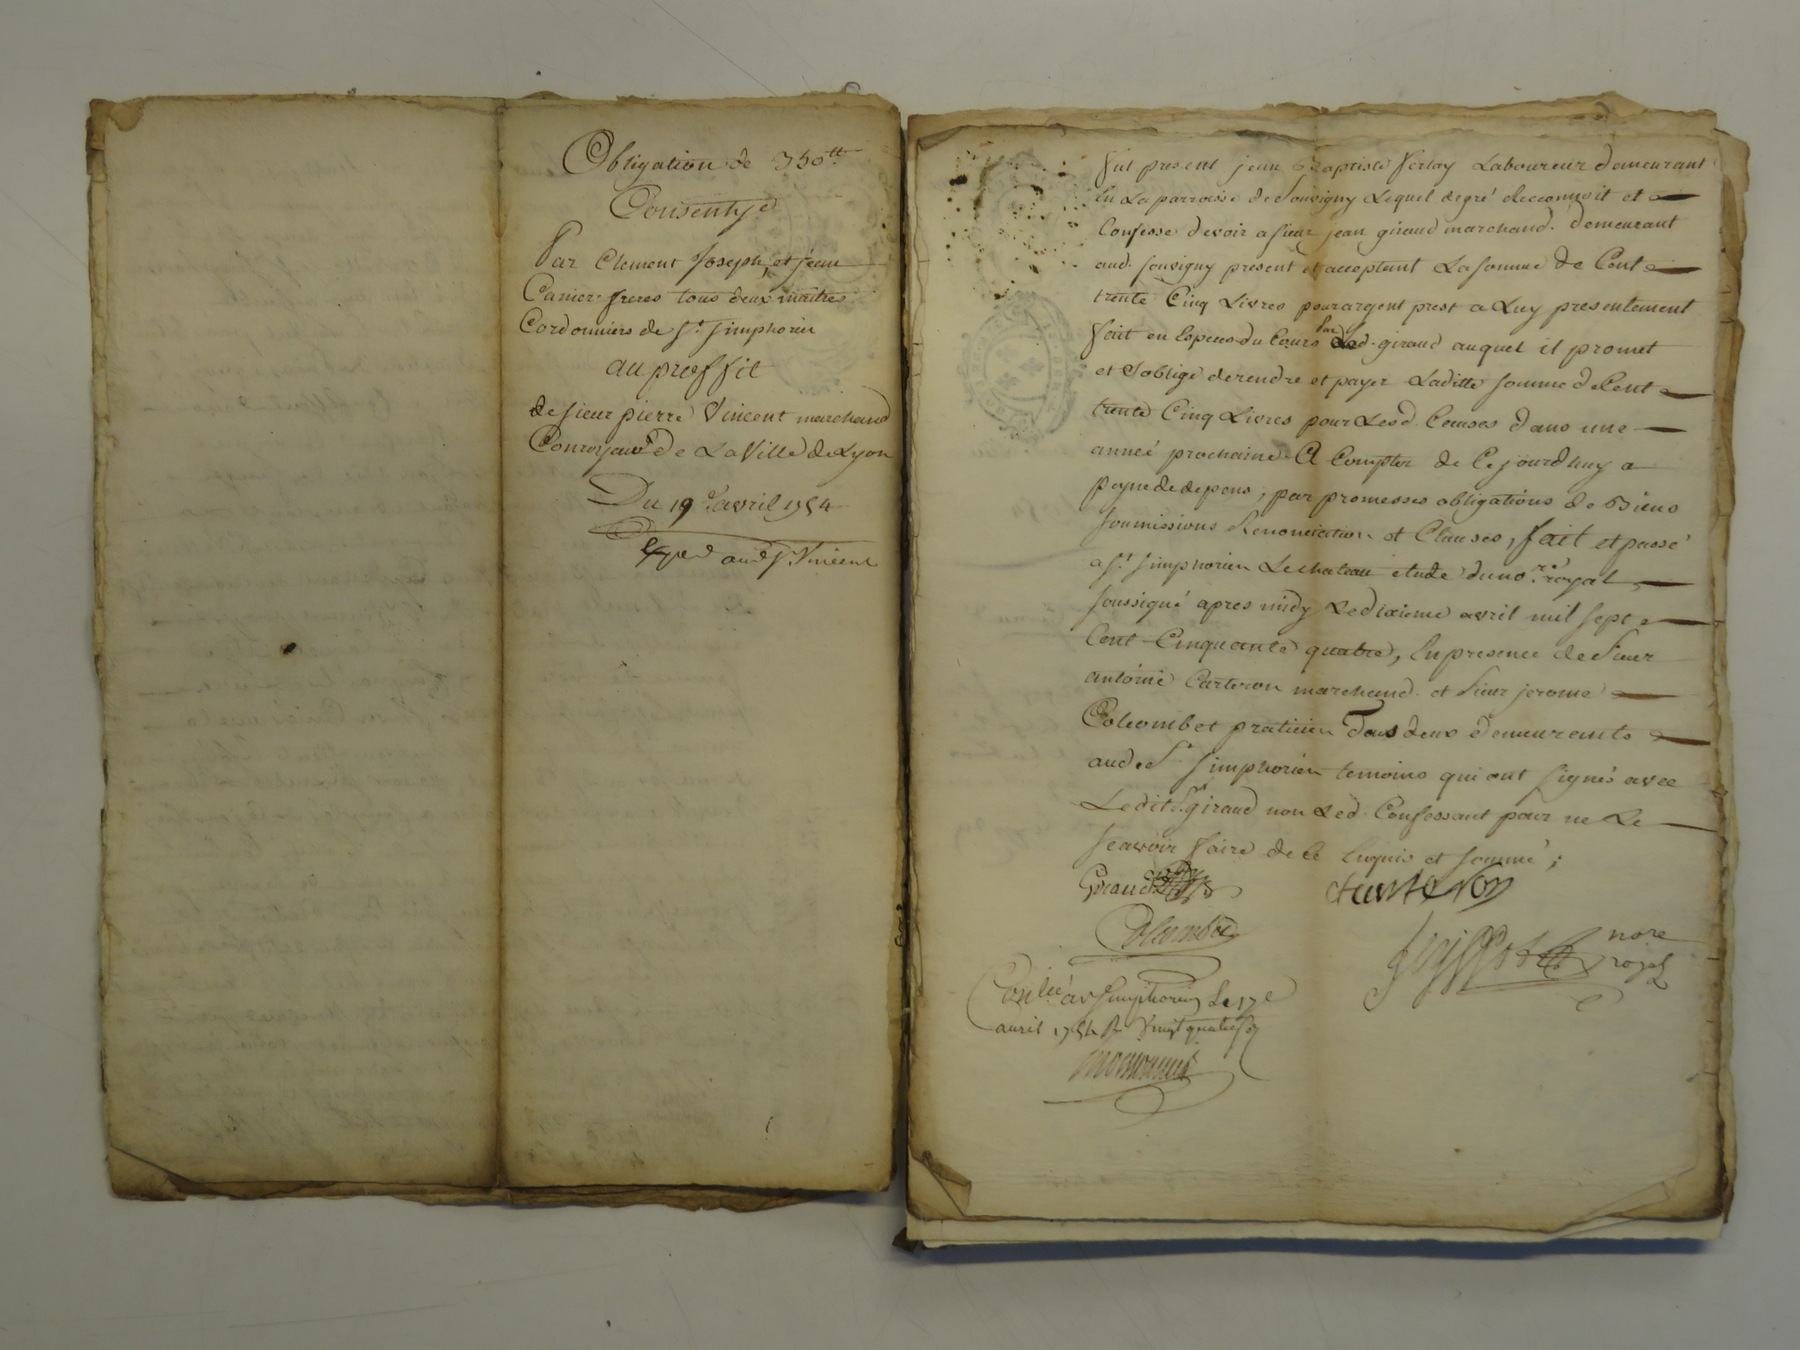 Obligation de 350 tt
Consentye
Par Clement Joseph, et jean
Canier freres tous deux maitres
Cordonniers de St. Simphorien
au proffit
de sieur pierre Vincent marchand
Conroyeur de La Ville de Lyon
Du 19e avril 1754
Exped. aud. Sr. Vincent
fut present jean Baptiste Verlay Laboureur demeurant
en La parroisse de Souvigny Lequel de gré Reconnoit et
Confesse devoir a sieur jean giraud marchand. demeurant
aud. souvigny present et acceptant La somme de Cent
trente Cinq Livres pour argent prest a Luy presentement
fait en Especes du Cours par Led. giraud auquel il promet
et S'oblige de rendre et payer Laditte somme de Cent
trente Cinq Livres pour Lesd. Causes dans une
année prochaine A Compter de Ce jourdhuy a
peyne de depens, par promesses obligations de Biens
soumissions Renonciation et Clauses, fait et passé
a St. Simphorien Le chateau etude du nore. royal
soussigné apres midy Le dixieme avril mil sept
Cent Cinquante quatre, En presence de Sieur
antoine Carteron marchand. et Sieur jerome
Colcombet praticien Tous deux demeurants
aud. St. Simphorien temoins qui ont signés avec
Ledit Sr. giraud non Led. Confessant pour ne Le
scavoir faire de Ce Enquis et sommé;
Giraud
Carteron
Colcombet
nore
royal
Conlé a St Simphorien Le 17e
avril 1754 R. Vingt quatre s.